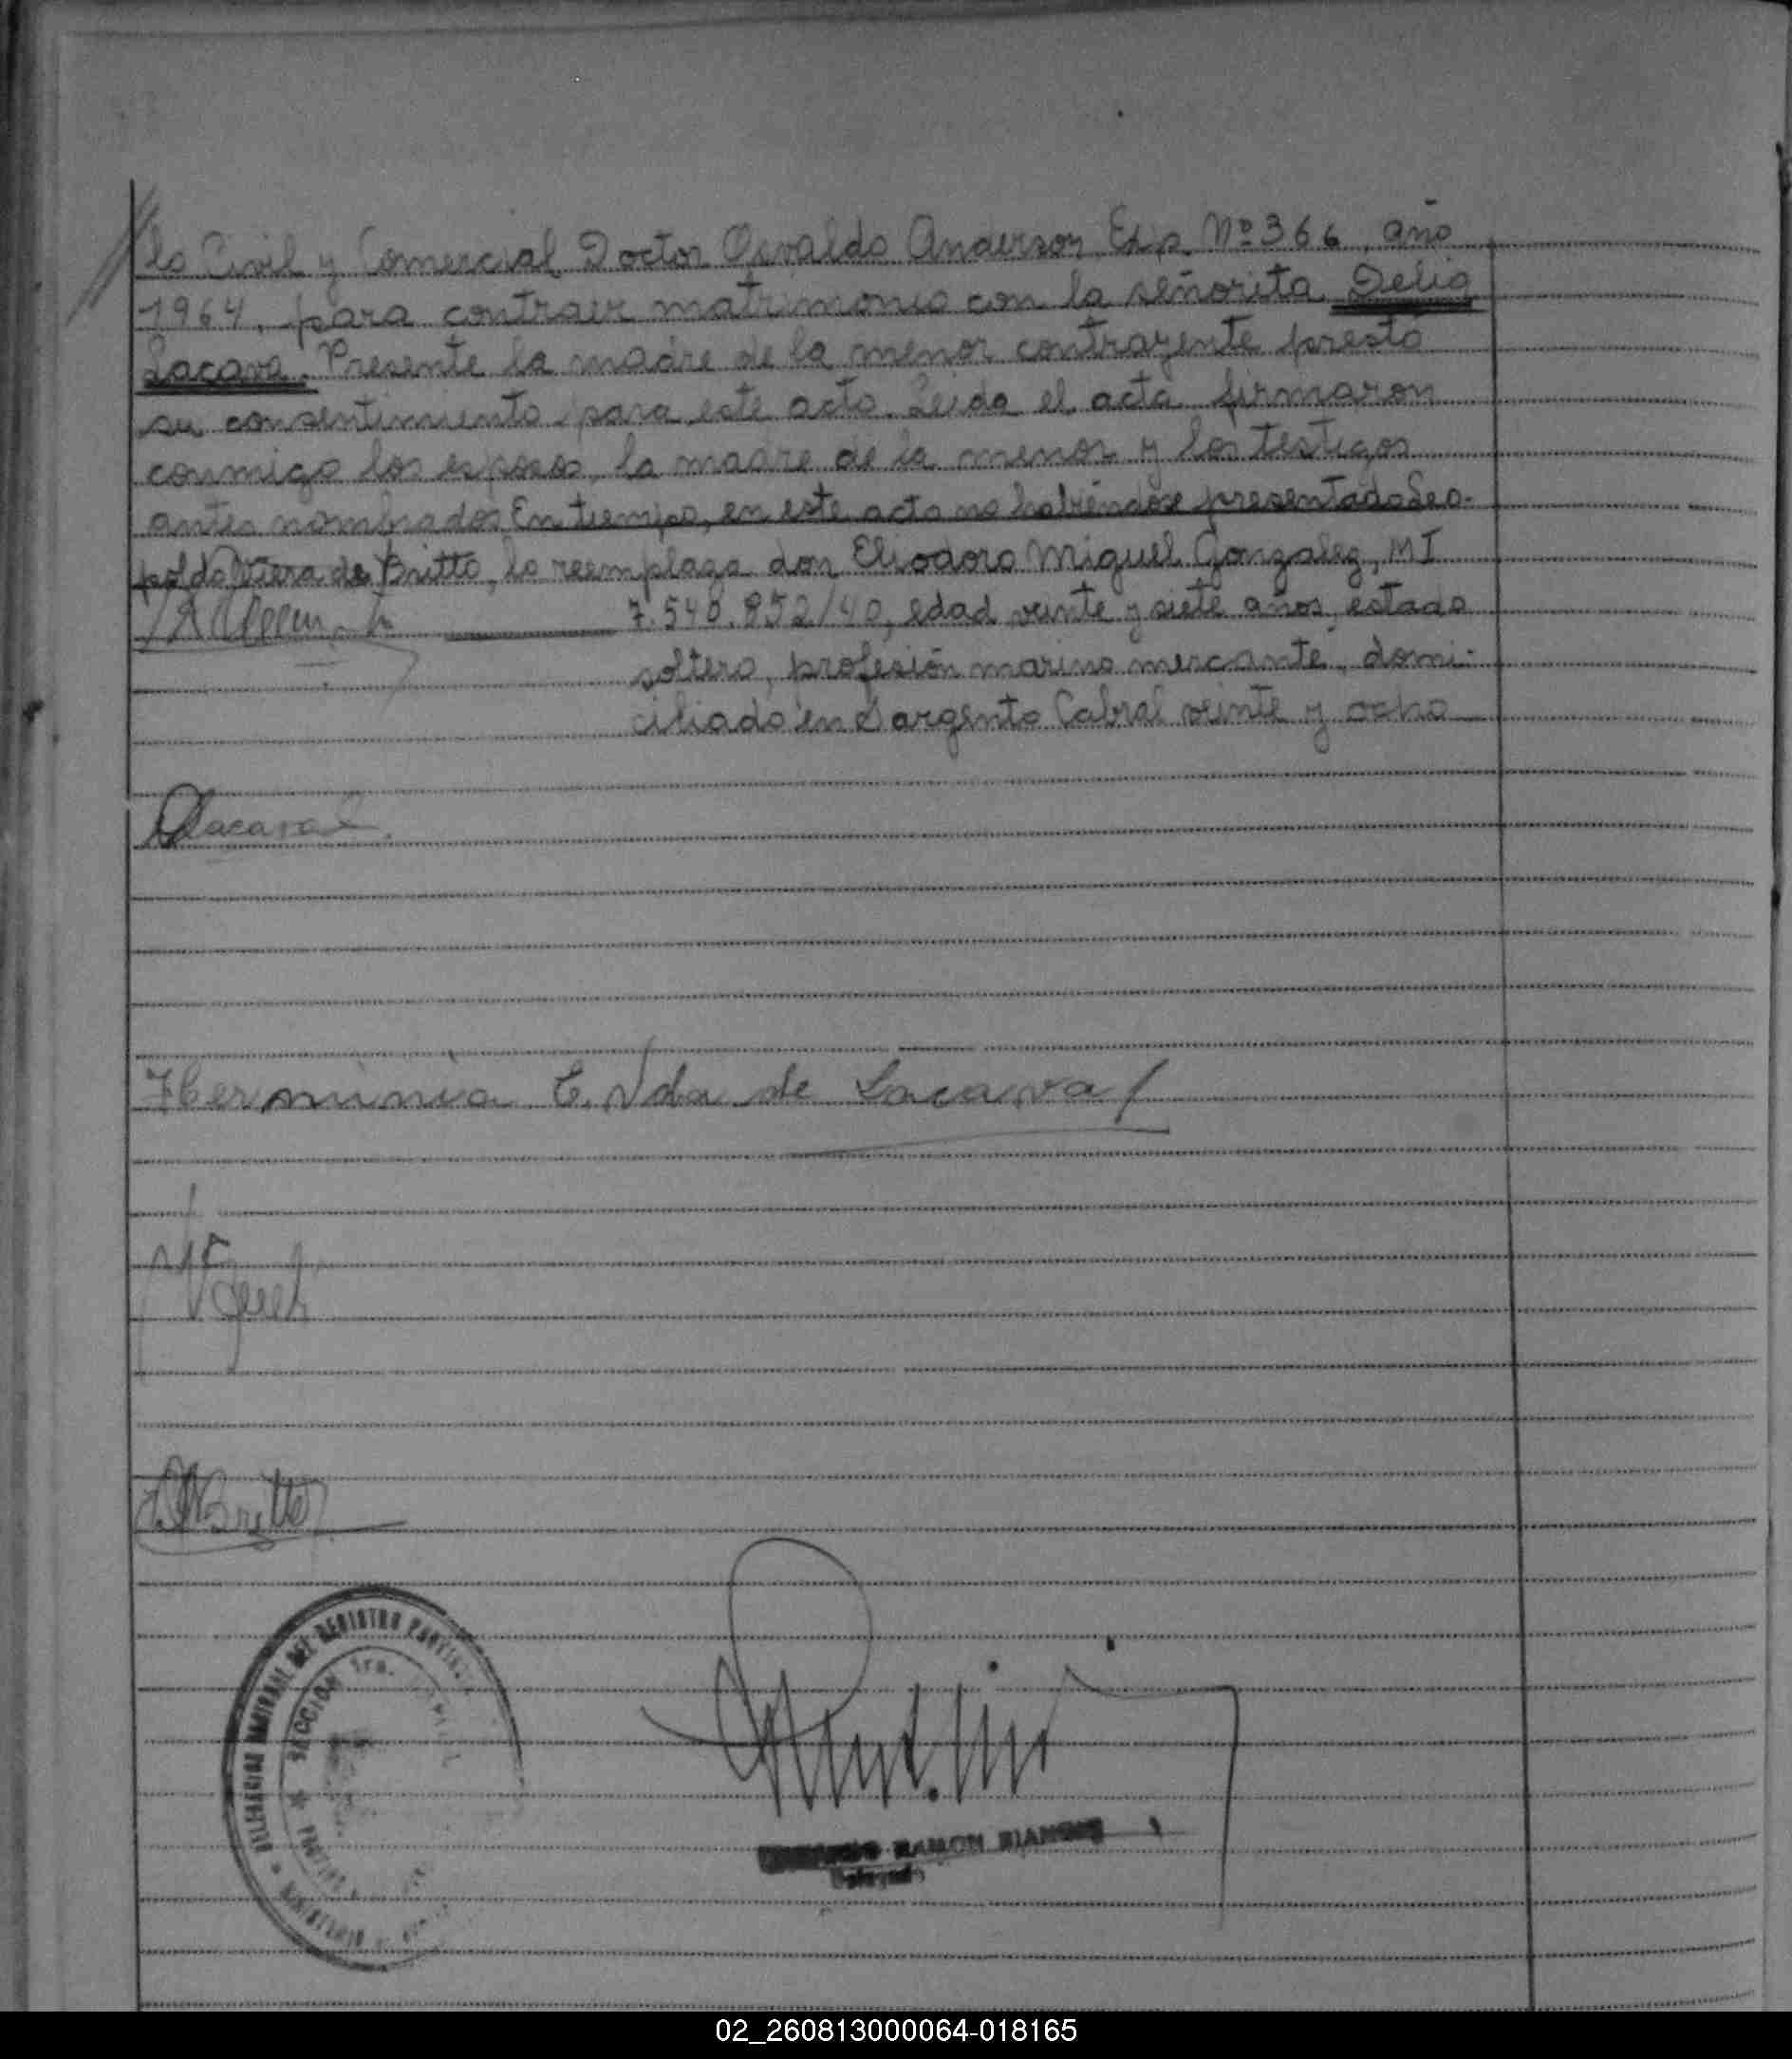 lo Civil y Comercial, Doctor Osvaldo Anderson Exp. Nº 366, año
1964, para contraer matrimonio con la señorita Delia
Lacava. Presente la madre de la menor contrayente prestó
su consentimiento para este acto. Leida el acta firmaron
conmigo los esposos, la madre de la menor y los testigos
antes nombrados En tiempo, en este acto no habiéndose presentado Leo-
poldo Viera de Britto, lo reemplaza don Eliodoro Miguel Gonzalez, MI
7.540.952/40, edad veinte y siete años, estado
soltero, profesión marino mercante, domi-
ciliado en Sargento Cabral veinte y ocho
Lacava
Herminia C. Vda de Lacava
Britto
DELEGACION NACIONAL DEL REGISTRO
SECCION 1ra.
RAMON BIANCHI
Delegado
02_260813000064-018165